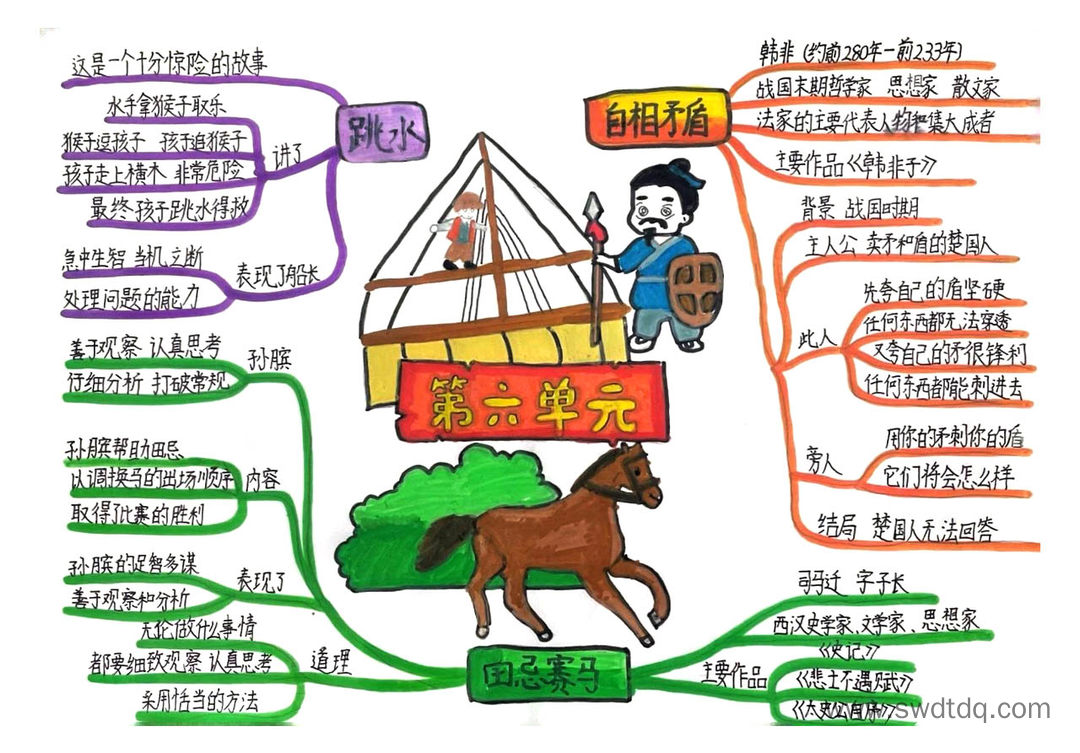 第六单元
跳水
这是一个十分惊险的故事
讲了
水手拿猴子取乐
猴子逗孩子 孩子追猴子
孩子走上横木 非常危险
最终孩子跳水得救
表现了船长
急中生智 当机立断
处理问题的能力
自相矛盾
韩非 (约前280年—前233年)
战国末期哲学家 思想家 散文家
法家的主要代表人物和集大成者
主要作品《韩非子》
背景 战国时期
主人公 卖矛和盾的楚国人
此人
先夸自己的盾坚硬
任何东西都无法穿透
又夸自己的矛很锋利
任何东西都能刺进去
旁人
用你的矛刺你的盾
它们将会怎么样
结局 楚国人无法回答
田忌赛马
孙膑
善于观察 认真思考
仔细分析 打破常规
内容
孙膑帮助田忌
以调换马的出场顺序
取得了比赛的胜利
表现了
孙膑的足智多谋
善于观察和分析
道理
无论做什么事情
都要细致观察 认真思考
采用恰当的方法
司马迁 字子长
西汉史学家、文学家、思想家
主要作品
《史记》
《悲士不遇赋》
《太史公自序》
swdtdq.com